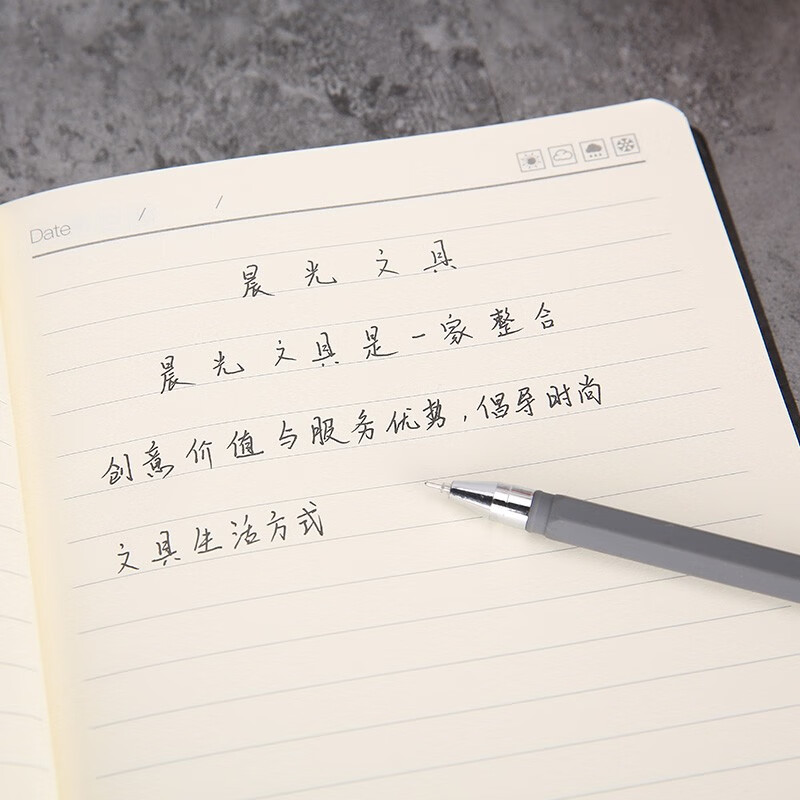 Date / /
晨光文具
晨光文具是一家整合
创意价值与服务优势,倡导时尚
文具生活方式